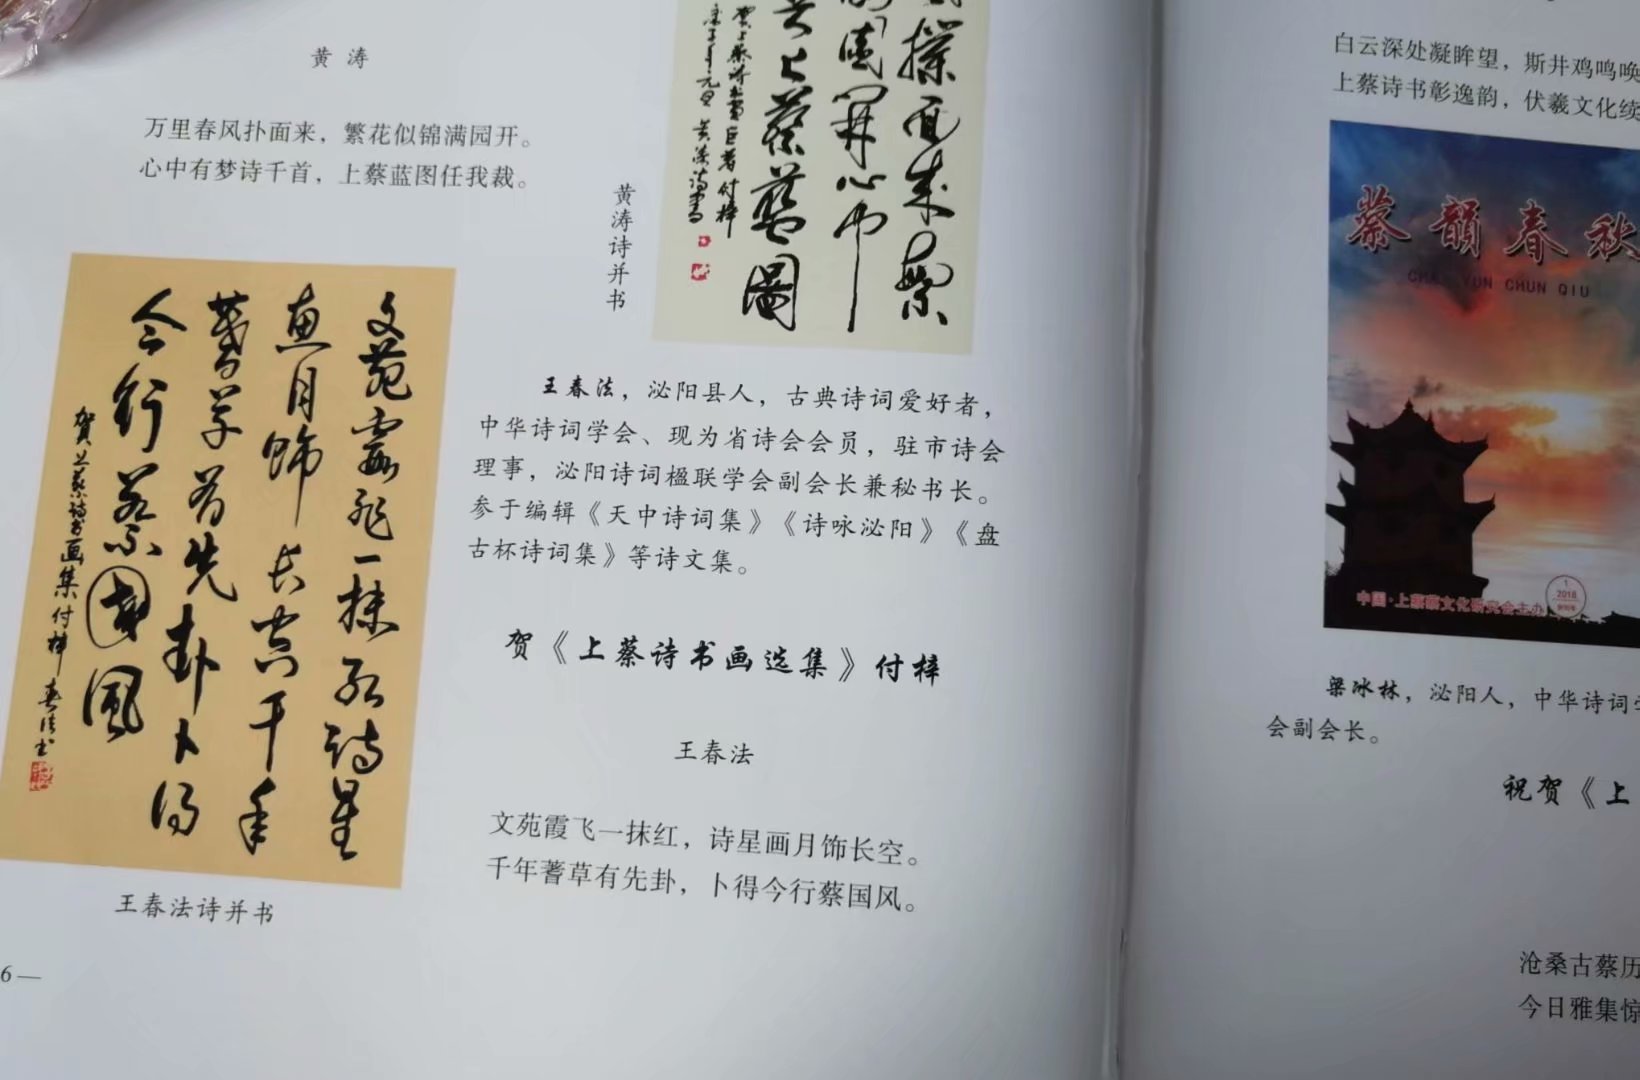 黄 涛
万里春风扑面来，繁花似锦满园开。
心中有梦诗千首，上蔡蓝图任我裁。
扑面来繁
园开心中
上蔡蓝图
黄涛诗并书
文苑霞飞一抹红诗星
画月饰长空千年
蓍草有先卦卜得
今行蔡国风
贺上蔡诗书画集付梓 春法书
王春法诗并书
6—
王春法，泌阳县人，古典诗词爱好者，
中华诗词学会、现为省诗会会员，驻市诗会
理事，泌阳诗词楹联学会副会长兼秘书长。
参于编辑《天中诗词集》《诗咏泌阳》《盘
古杯诗词集》等诗文集。
贺《上蔡诗书画选集》付梓
王春法
文苑霞飞一抹红，诗星画月饰长空。
千年蓍草有先卦，卜得今行蔡国风。
白云深处凝眸望，斯井鸡鸣唤
上蔡诗书彰逸韵，伏羲文化续
蔡韵春秋
CHAI YUN CHUN QIU
中国·上蔡蔡文化研究会主办
1
2018
梁冰林，泌阳人，中华诗词学
会副会长。
祝贺《上
沧桑古蔡历
今日雅集惊